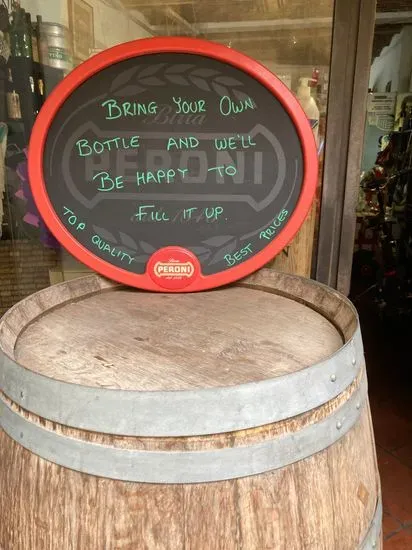 Bring Your Own
Birra
Bottle and we'll
PERONI
Be happy to
Fill it up.
Top Quality
Best Prices
Birra
PERONI